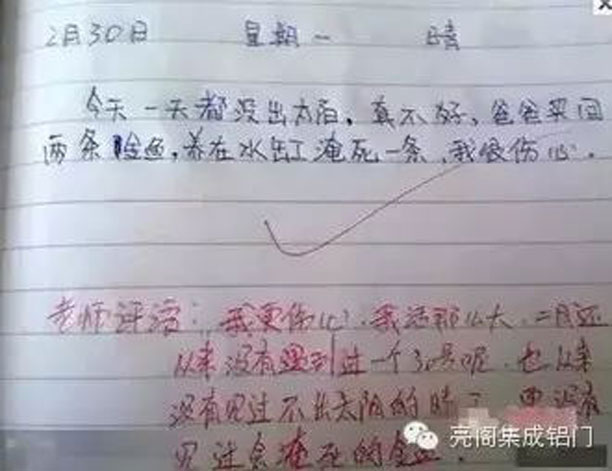 2月30日 星期一 晴
今天一天都没出太阳,真不好,爸爸买回
两条金鱼,养在水缸淹死一条,我很伤心.
老师评语:我更伤心.我活那么大,二月还
从来没有遇到过一个30号呢.也从来
没有见过不出太阳的晴了.更没有
见过会淹死的金鱼.
亮阁集成铝门